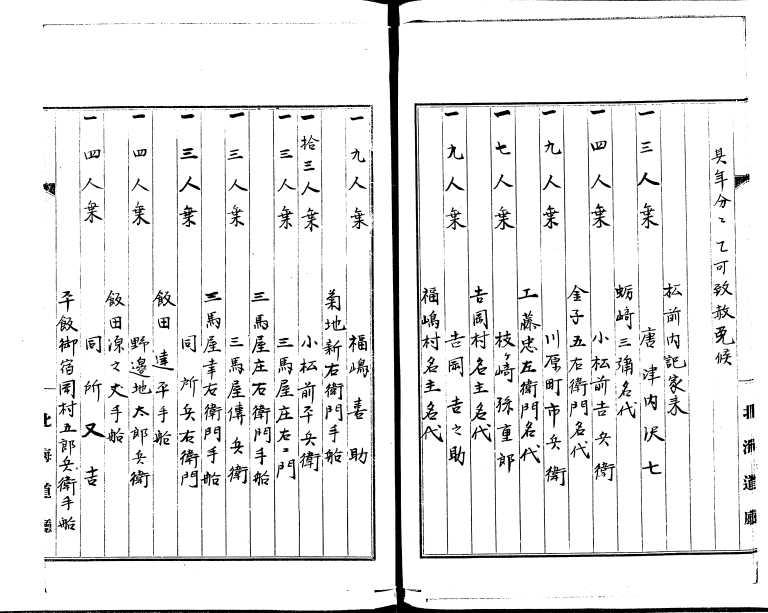 具年分〻〻可致赦免候
松前内記家来
一三人乗 唐津内沢七
蛎﨑三弥名代
一四人乗 小松前吉兵衛
金子五右衛門名代
一九人乗 川原町市兵衛
工藤忠左衛門名代
一七人乗 枝ヶ﨑孫重郎
吉岡村名主名代
一九人乗 吉岡吉之助
福嶋村名主名代
北海道廳
一九人乗 福嶋喜助
菊地新右衛門手船
一拾三人乗 小松前平兵衛
一三人乗 三馬屋庄右〻門
三馬屋庄右衛門手船
一三人乗 三馬屋傳兵衛
三馬屋幸右衛門手船
一三人乗 同所兵右衛門
飯田達平手船
一四人乗 野邊地太郎兵衛
飯田源之丈手船
一四人乗 同所又吉
平飯御宿岡村五郎兵衛手船
北海道廳